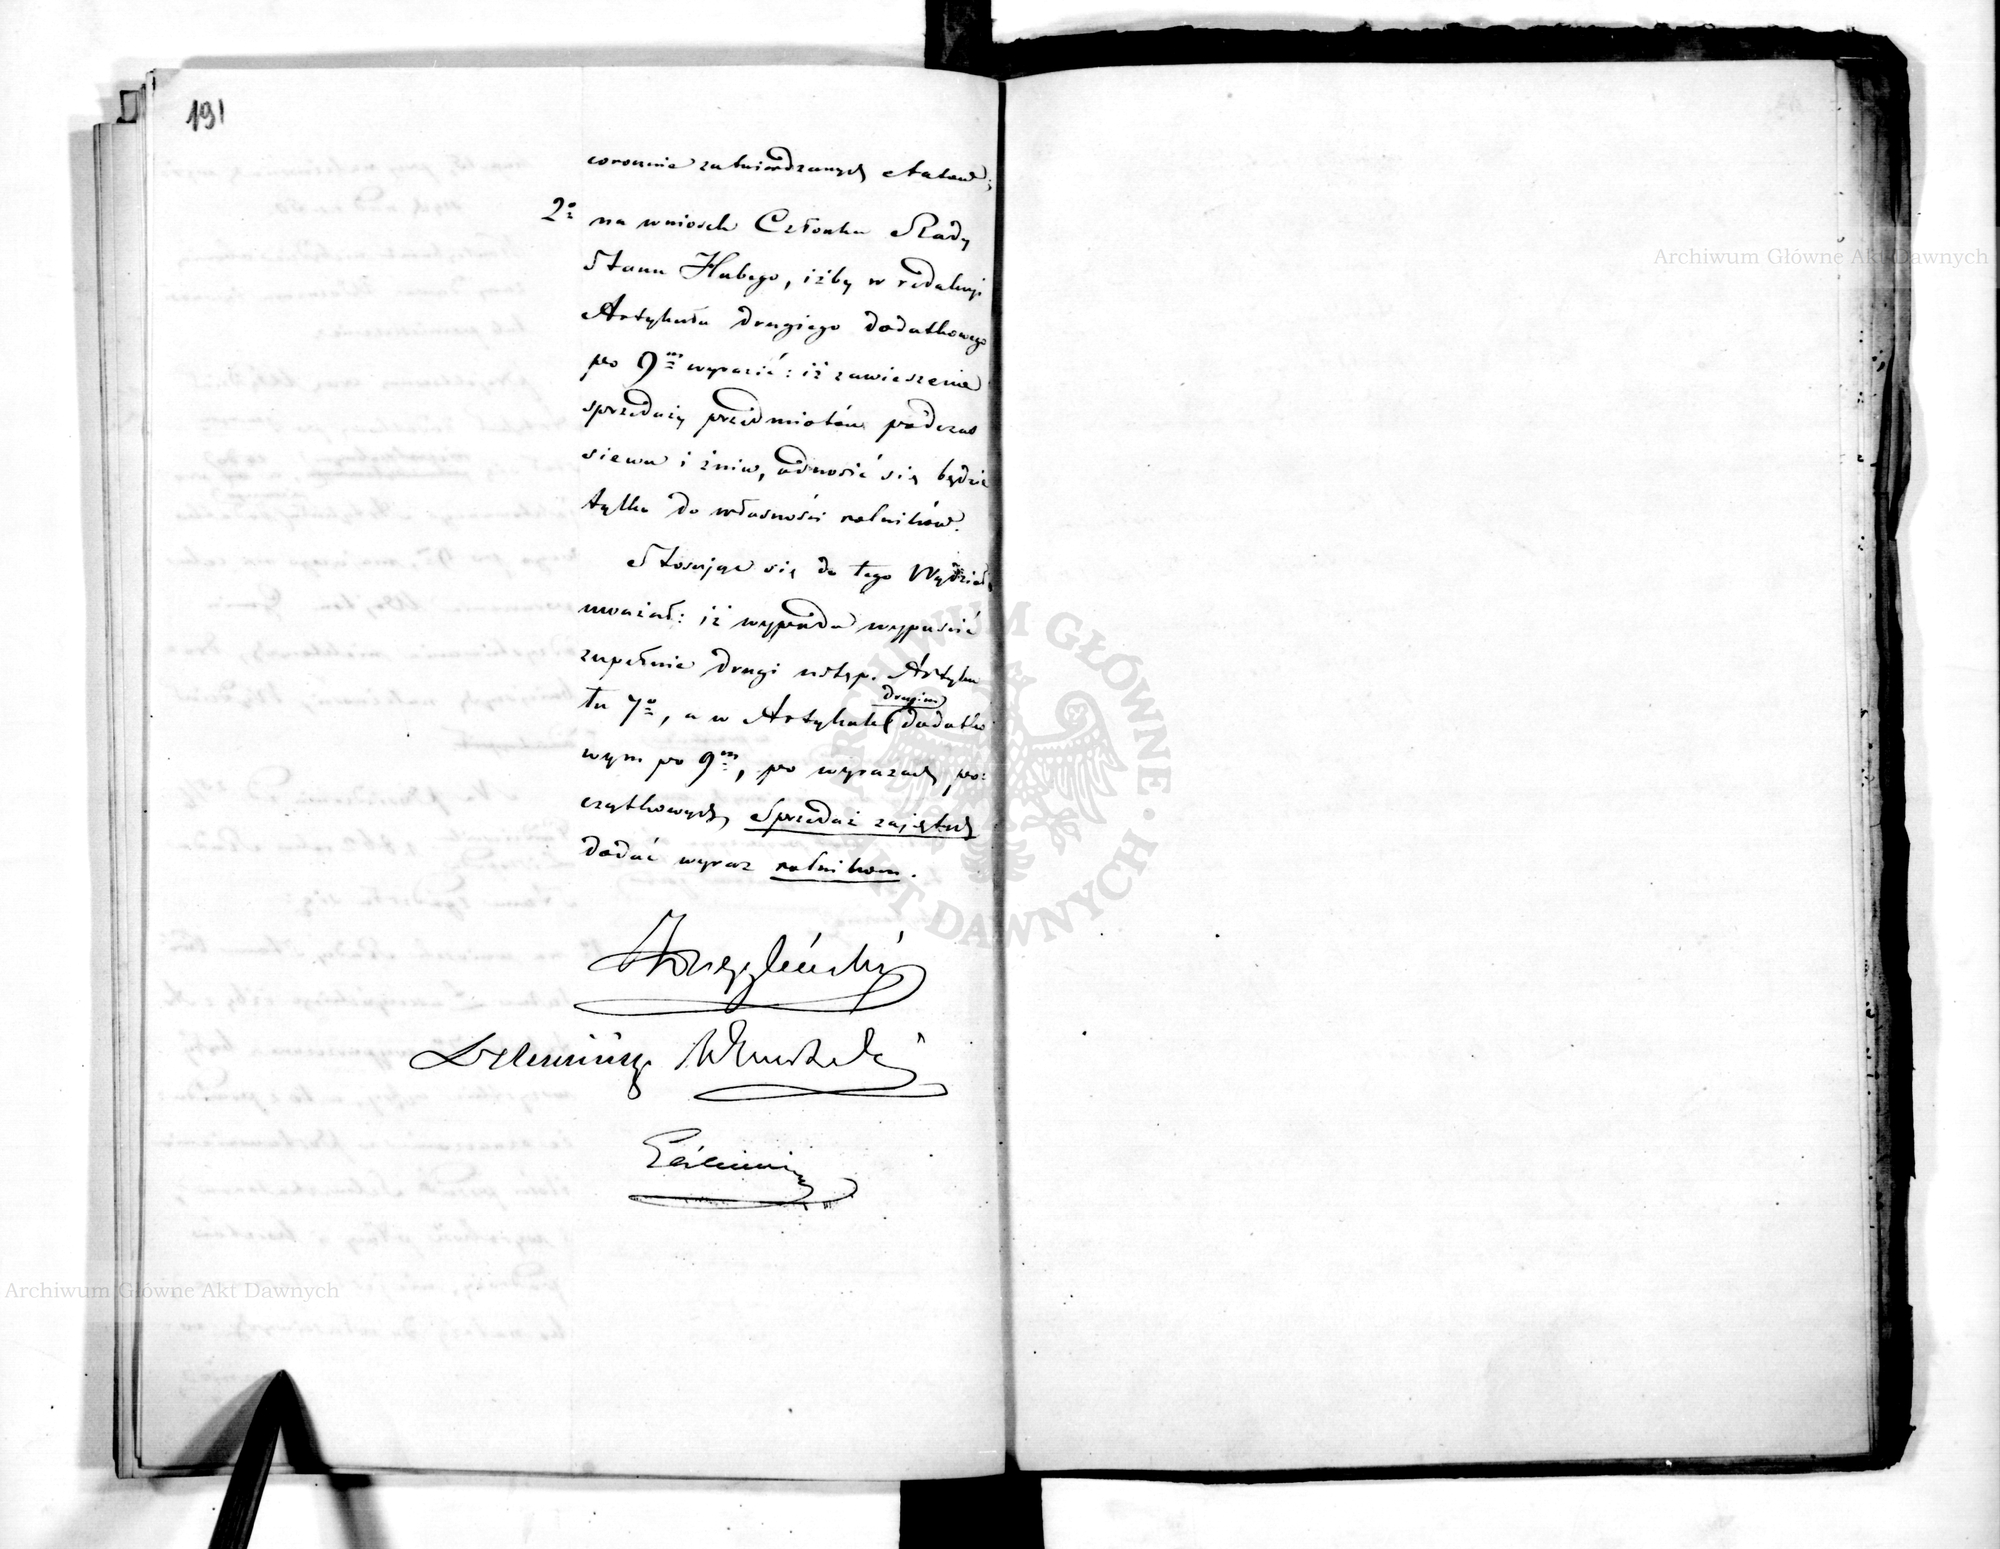 191
corocznie zatwierdzanych etatów;
2o na wniosek Członka Rady
Stanu Hubego, iżby w redakcyi
Artykułu drugiego dodatkowego
po 9m wyrazić: iż zawieszenie
sprzedaży przedmiotów podczas
siewu i żniw, odnosić się będzie
tylko do własności rolników.
Stosując się do tego Wydział
uważał: iż wypada wypuścić
zupełnie drugi ustęp Artyku
łu 7o, a w Artykule drugim dodatko
wym po 9m, po wyrazach po:
czątkowych, Sprzedaż zajętych
dodać wyraz rolnikom.
Archiwum Główne Akt Dawnych
Archiwum Główne Akt Dawnych
ARCHIWUM GŁÓWNE AKT DAWNYCH